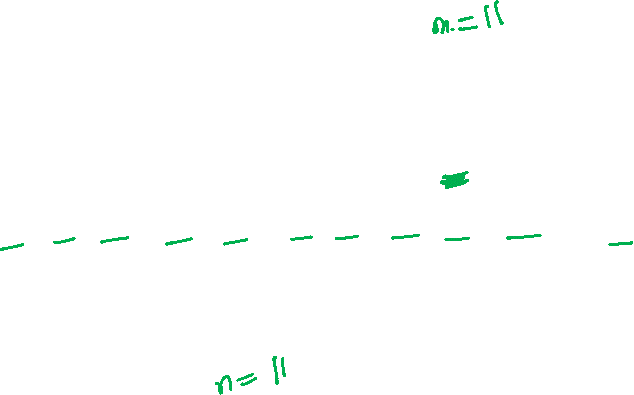 n = 11
n = 11